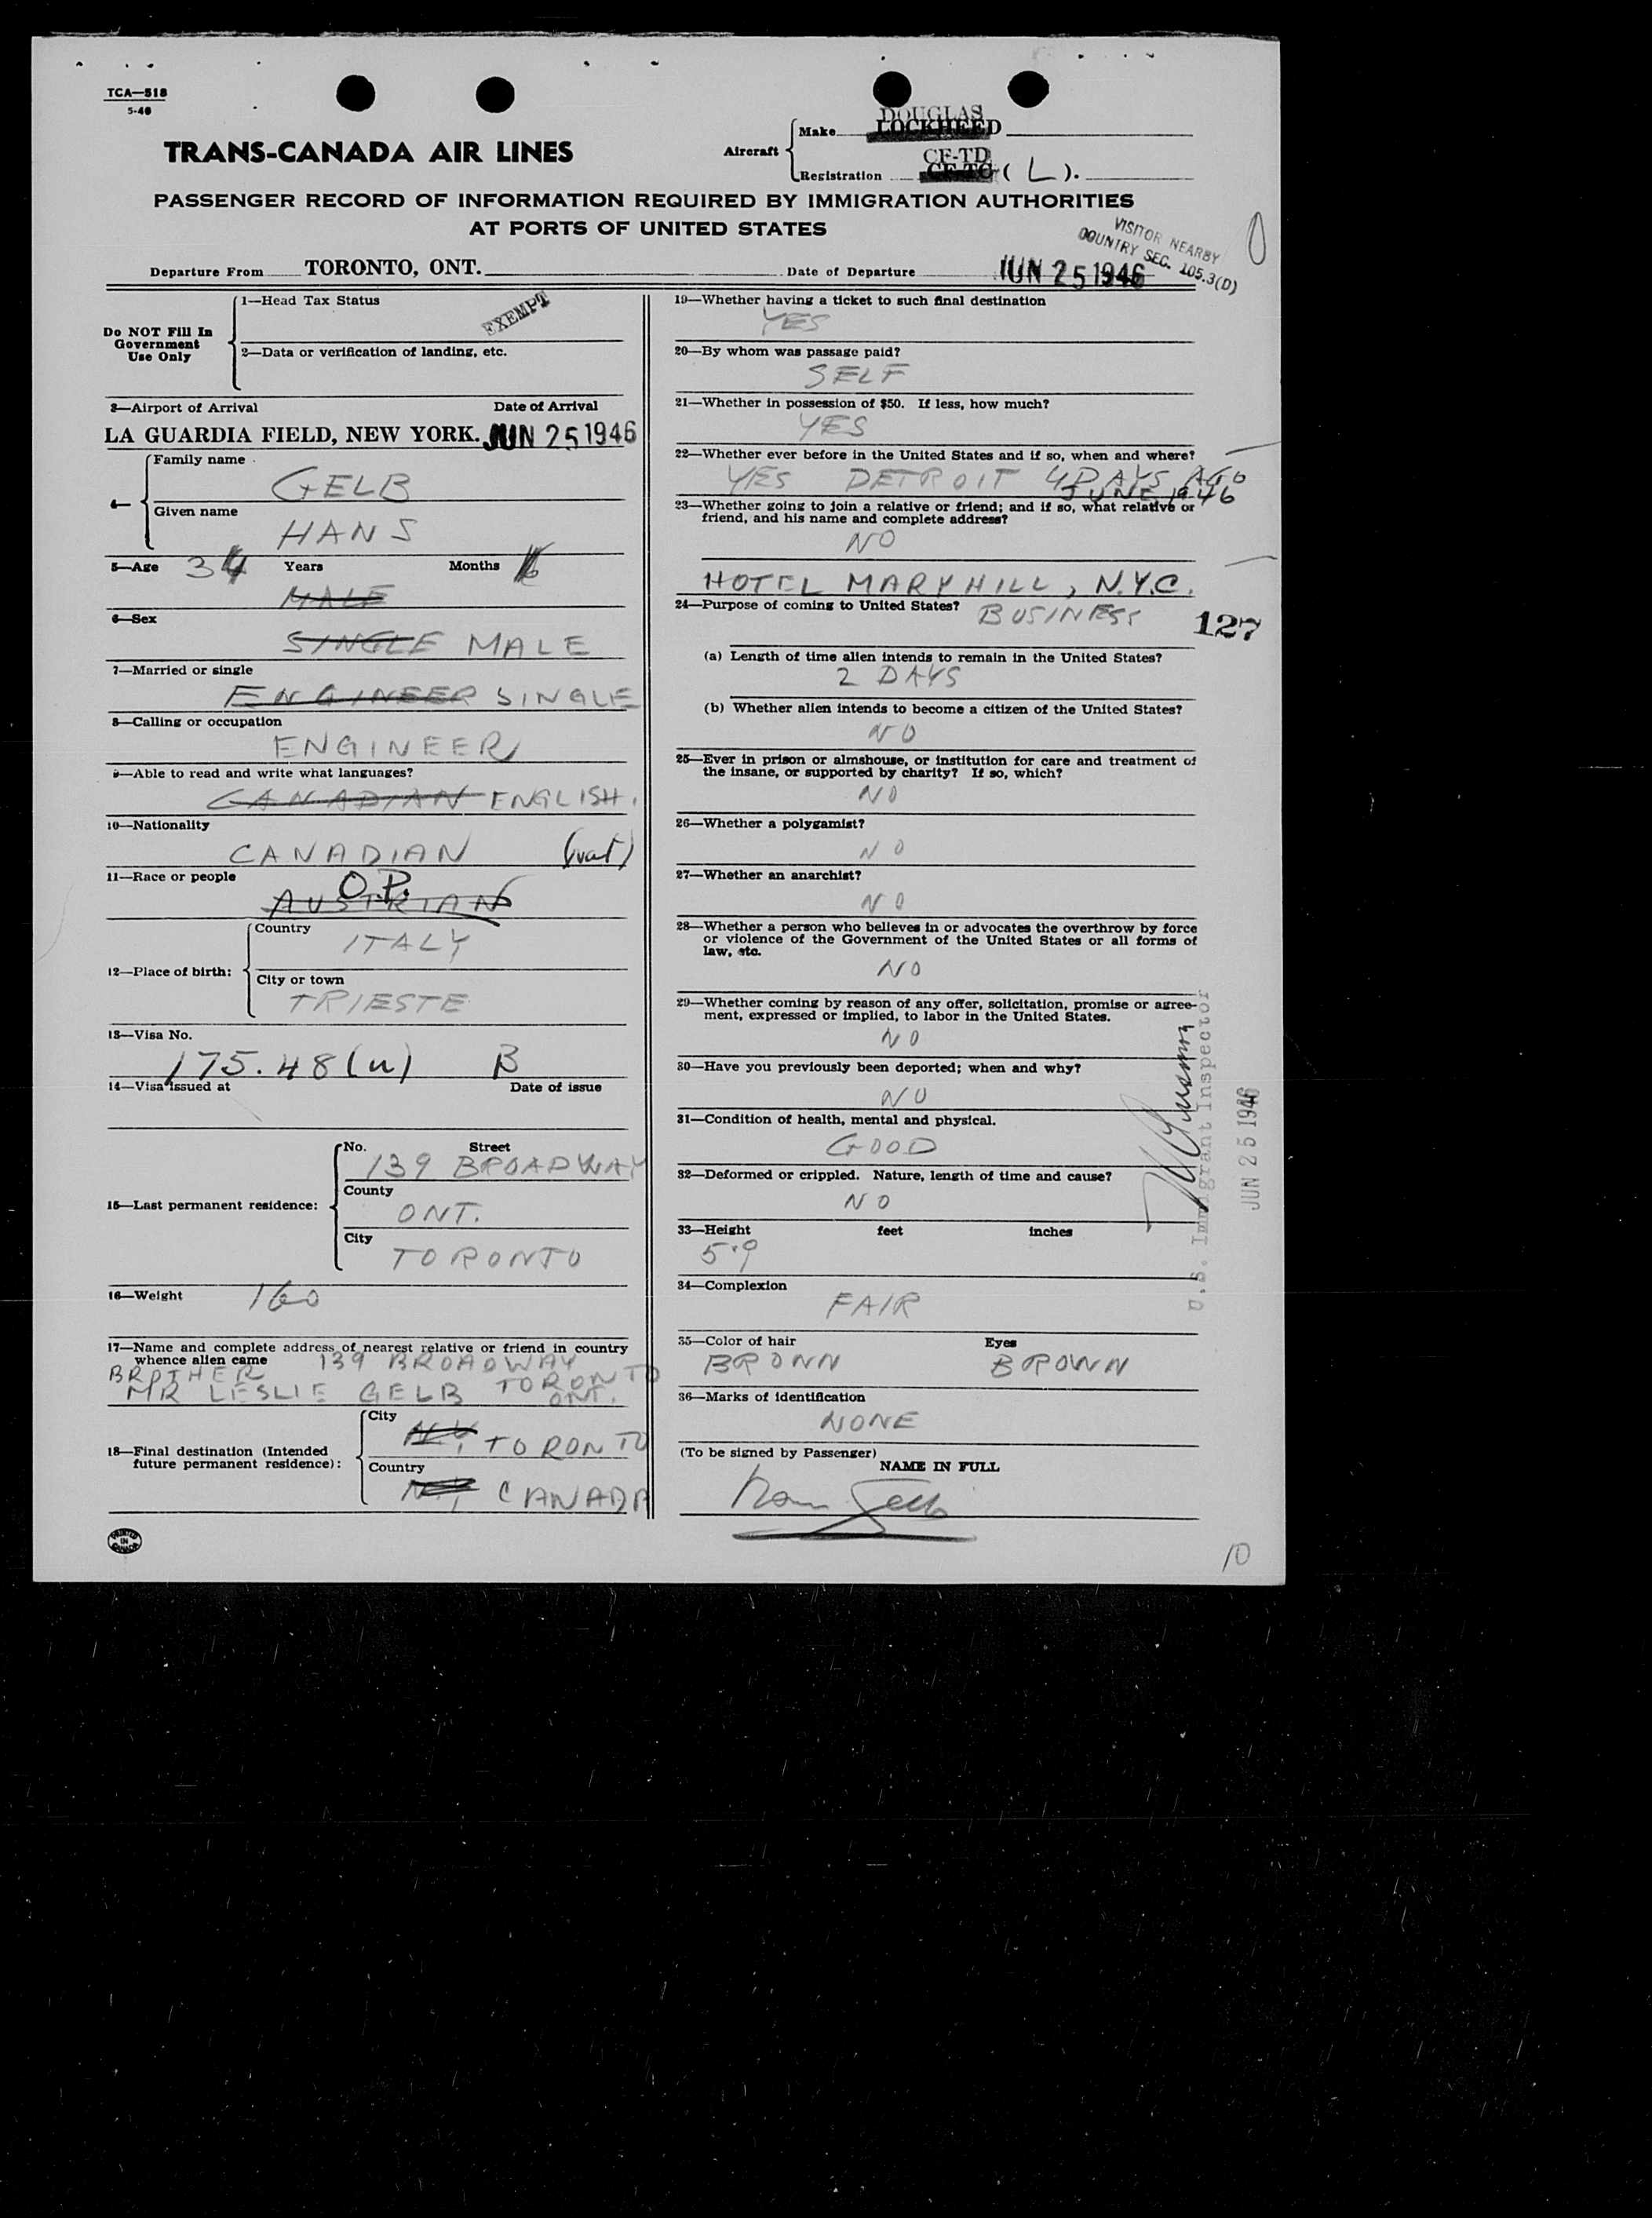 TCA—518
5-46
TRANS-CANADA AIR LINES
Aircraft
Make DOUGLAS
LOCKHEED
Registration CF-TD
CF-TC ( L ).
PASSENGER RECORD OF INFORMATION REQUIRED BY IMMIGRATION AUTHORITIES
AT PORTS OF UNITED STATES
VISITOR NEARBY
COUNTRY SEC. 105.3(D)
Departure From TORONTO, ONT. Date of Departure JUN 25 1946
Do NOT Fill In
Government
Use Only
1—Head Tax Status
EXEMPT
2—Data or verification of landing, etc.
3—Airport of Arrival Date of Arrival
LA GUARDIA FIELD, NEW YORK. JUN 25 1946
4—
Family name
GELB
Given name
HANS
5—Age 34 Years Months 6
MALE
6—Sex
SINGLE MALE
7—Married or single
ENGINEER SINGLE
8—Calling or occupation
ENGINEER
9—Able to read and write what languages?
CANADIAN ENGLISH.
10—Nationality
CANADIAN (nat)
11—Race or people
O.P.
AUSTRIAN
12—Place of birth:
Country
ITALY
City or town
TRIESTE
13—Visa No.
175.48(u) B
14—Visa issued at Date of issue
15—Last permanent residence:
No. Street
139 BROADWAY
County
ONT.
City
TORONTO
16—Weight 160
17—Name and complete address of nearest relative or friend in country
whence alien came 139 BROADWAY
BROTHER TORONTO
MR LESLIE GELB ONT.
18—Final destination (Intended
future permanent residence):
City
N.Y. TORONTO
Country
N.Y. CANADA
PRINTED
IN
CANADA
19—Whether having a ticket to such final destination
YES
20—By whom was passage paid?
SELF
21—Whether in possession of $50. If less, how much?
YES
22—Whether ever before in the United States and if so, when and where?
YES DETROIT 4 DAYS AGO
JUNE 1946
23—Whether going to join a relative or friend; and if so, what relative or
friend, and his name and complete address?
NO
HOTEL MARYHILL, N.Y.C.
24—Purpose of coming to United States? BUSINESS
127
(a) Length of time alien intends to remain in the United States?
2 DAYS
(b) Whether alien intends to become a citizen of the United States?
NO
25—Ever in prison or almshouse, or institution for care and treatment of
the insane, or supported by charity? If so, which?
NO
26—Whether a polygamist?
NO
27—Whether an anarchist?
NO
28—Whether a person who believes in or advocates the overthrow by force
or violence of the Government of the United States or all forms of
law, etc.
NO
29—Whether coming by reason of any offer, solicitation, promise or agree-
ment, expressed or implied, to labor in the United States.
NO
30—Have you previously been deported; when and why?
NO
31—Condition of health, mental and physical.
GOOD
32—Deformed or crippled. Nature, length of time and cause?
NO
33—Height feet inches
5.9
34—Complexion
FAIR
35—Color of hair Eyes
BRONN BROWN
36—Marks of identification
NONE
(To be signed by Passenger)
NAME IN FULL
Hans Gelb
U.S. Immigrant Inspector
JUN 25 1946
10